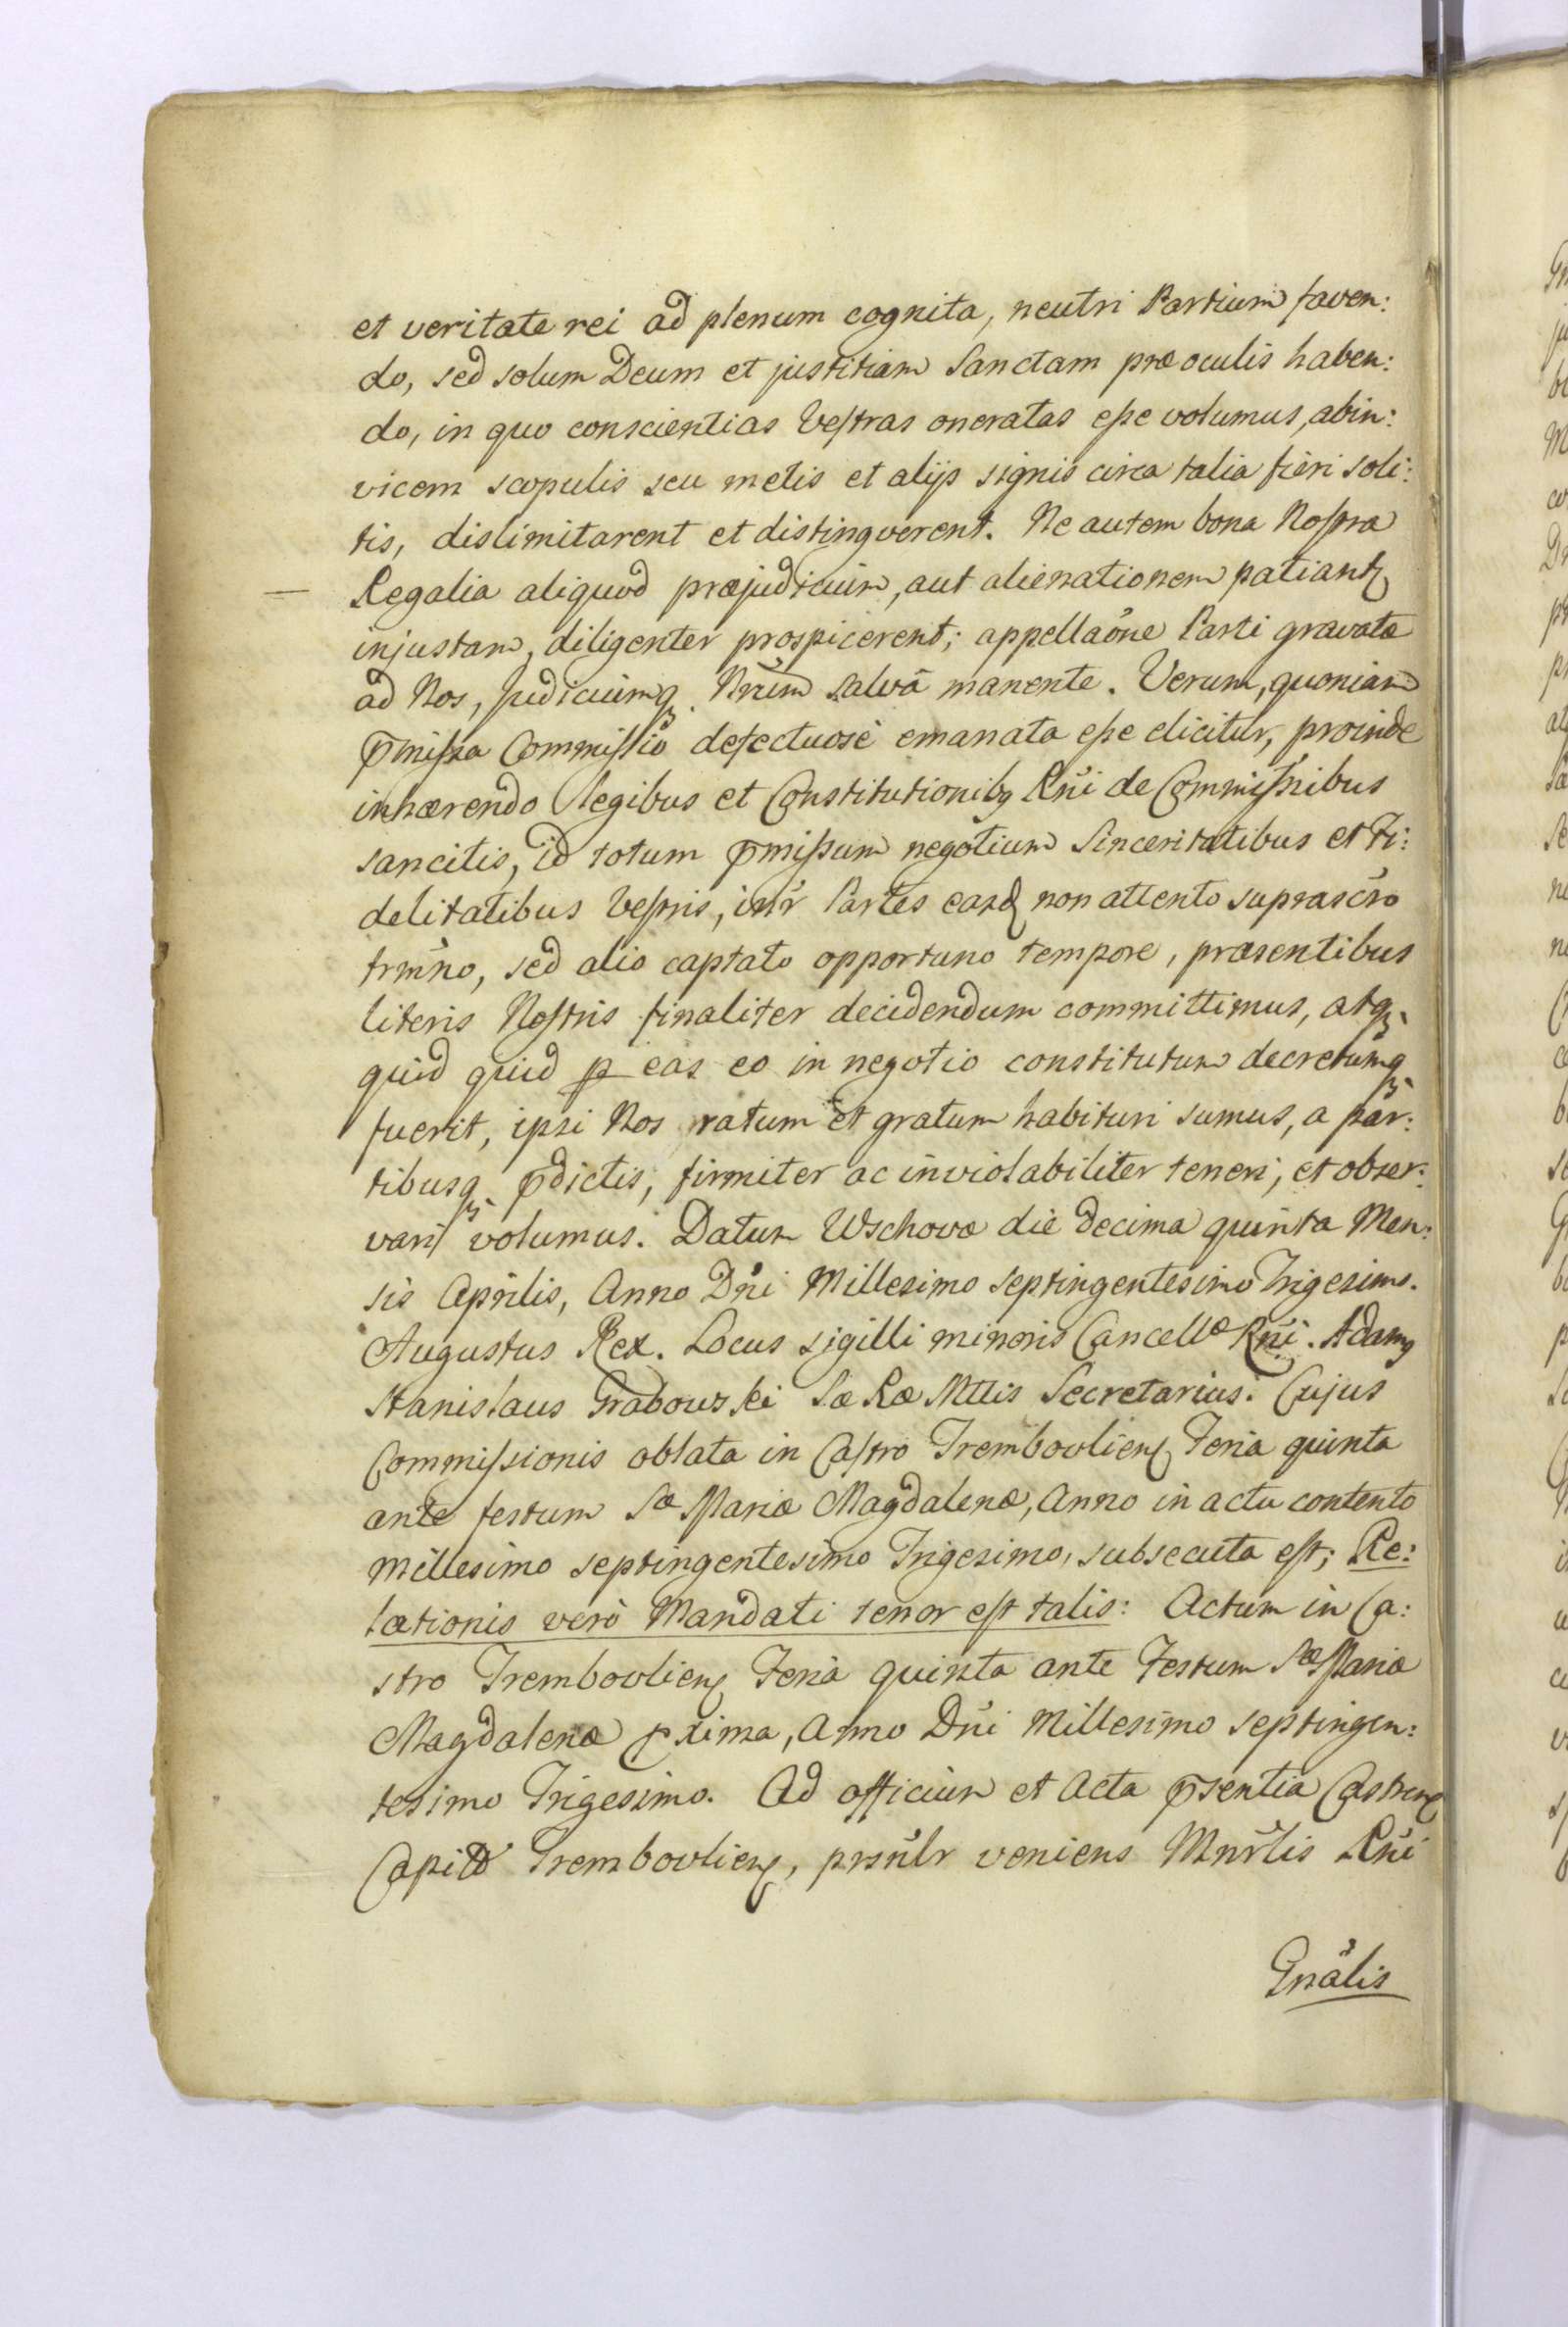 et veritate rei ad plenum cognita, neutri Partium faven:
do, sed solum Deum et justitiam Sanctam præ oculis haben:
do, in quo conscientias Vestras oneratas esse volumus, abin:
vicem scopulis seu metis et alijs signis circa talia fieri soli:
tis, dislimitarent et distingverent. Ne autem bona Nostra
Regalia aliquod præjudicium, aut alienationem patiantr
injustam, diligenter prospicerent; appellaõne Parti gravatæ
ad Nos, Judiciumq Nrum salvâ manente. Verum, quoniam
p̄missa Commissio defectuosè emanata esse dicitur, proinde
inhærendo legibus et Constitutionibq Rñi de Commissnibus
sancitis, id totum p̄missum negotium Sinceritatibus et Fi:
delitatibus Vestris, intr Partes easd non attento suprascro
trmno, sed alio captato opportuno tempore, præsentibus
literis Nostris finaliter decidendum committimus, atq
quid quid p eas eo in negotio constitutum decretumq
fuerit, ipsi Nos ratum et gratum habituri sumus, a par:
tibusq p̄dictis, firmiter ac inviolabiliter teneri, et obser:
vari volumus. Datum Wschovæ die decima quinta Men:
sis Aprilis, Anno Dñi Millesimo Septingentesimo Trigesimo.
Augustus Rex. Locus Sigilli minoris Cancellæ Rñi. Adamq
Stanislaus Grabowski Sæ Ræ Mttis Secretarius. Cujus
Commissionis oblata in Castro Trembovliens Feria quinta
ante festum Sæ Mariæ Magdalenæ, Anno in actu contento
Millesimo septingentesimo Trigesimo, subsecuta est; Re:
lationis verò Mandati tenor est talis: Actum in Ca:
stro Trembovliens Feria quinta ante Festum Sæ Mariæ
Magdalenæ pxima, Anno Dñi Millesimo septingen:
tesimo Trigesimo. Ad officium et Acta p̄sentia Castrens
Capitt Trembovliens, prsnlr veniens Mnrlis Rñi
Gnãlis